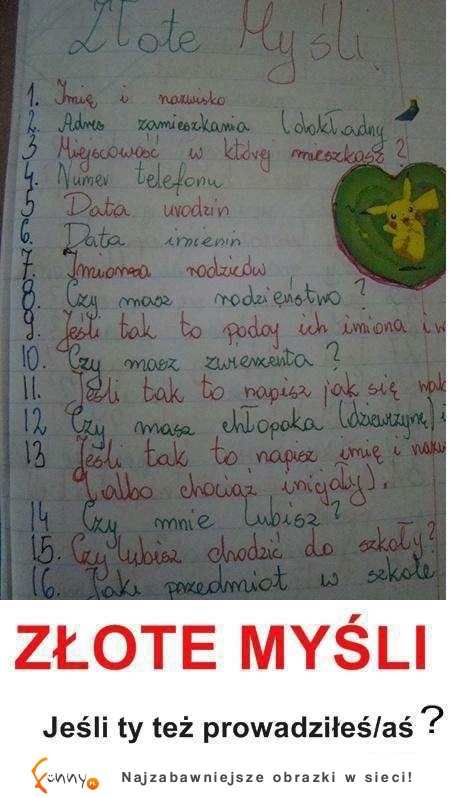 Złote Myśli.
1. Imię i nazwisko
2. Adres zamieszkania (dokładny
3 Miejscowość w której mieszkasz?
4. Numer telefonu
5 Data urodzin
6. Data imienin
7. Imiona rodziców
8. Czy masz rodzieństwo?
9. Jeśli tak to podaj ich imiona i w
10. Czy masz zwierzenta?
11. Jeśli tak to napisz jak się wab
12 Czy masz chłopaka (dziewczynę) i
13 Jeśli tak to napisz imię i nazw
(albo chociaż inigały).
14 Czy mnie lubisz?
15. Czy lubisz chodzić do szkoły?
16. Jaki przedmiot w szkole
ZŁOTE MYŚLI
Jeśli ty też prowadziłeś/aś ?
Funny.PL Najzabawniejsze obrazki w sieci!